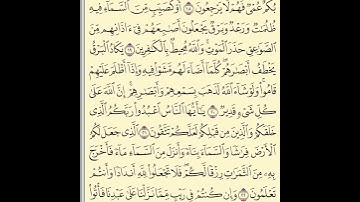 بُكْمٌ عُمْىٌ فَهُمْ لَا يَرْجِعُونَ ١٨ أَوْ كَصَيِّبٍ مِّنَ ٱلسَّمَآءِ فِيهِ
ظُلُمَٰتٌ وَرَعْدٌ وَبَرْقٌ يَجْعَلُونَ أَصَٰبِعَهُمْ فِىٓ ءَاذَانِهِم مِّنَ
ٱلصَّوَٰعِقِ حَذَرَ ٱلْمَوْتِ وَٱللَّهُ مُحِيطٌۢ بِٱلْكَٰفِرِينَ ١٩ يَكَادُ ٱلْبَرْقُ
يَخْطَفُ أَبْصَٰرَهُمْ كُلَّمَآ أَضَآءَ لَهُم مَّشَوْا۟ فِيهِ وَإِذَآ أَظْلَمَ عَلَيْهِمْ
قَامُوا۟ وَلَوْ شَآءَ ٱللَّهُ لَذَهَبَ بِسَمْعِهِمْ وَأَبْصَٰرِهِمْ إِنَّ ٱللَّهَ عَلَىٰ
كُلِّ شَىْءٍ قَدِيرٌ ٢٠ يَٰٓأَيُّهَا ٱلنَّاسُ ٱعْبُدُوا۟ رَبَّكُمُ ٱلَّذِى
خَلَقَكُمْ وَٱلَّذِينَ مِن قَبْلِكُمْ لَعَلَّكُمْ تَتَّقُونَ ٢١ ٱلَّذِى جَعَلَ لَكُمُ
ٱلْأَرْضَ فِرَٰشًا وَٱلسَّمَآءَ بِنَآءً وَأَنزَلَ مِنَ ٱلسَّمَآءِ مَآءً فَأَخْرَجَ
بِهِۦ مِنَ ٱلثَّمَرَٰتِ رِزْقًا لَّكُمْ فَلَا تَجْعَلُوا۟ لِلَّهِ أَندَادًا وَأَنتُمْ
تَعْلَمُونَ ٢٢ وَإِن كُنتُمْ فِى رَيْبٍ مِّمَّا نَزَّلْنَا عَلَىٰ عَبْدِنَا فَأْتُوا۟